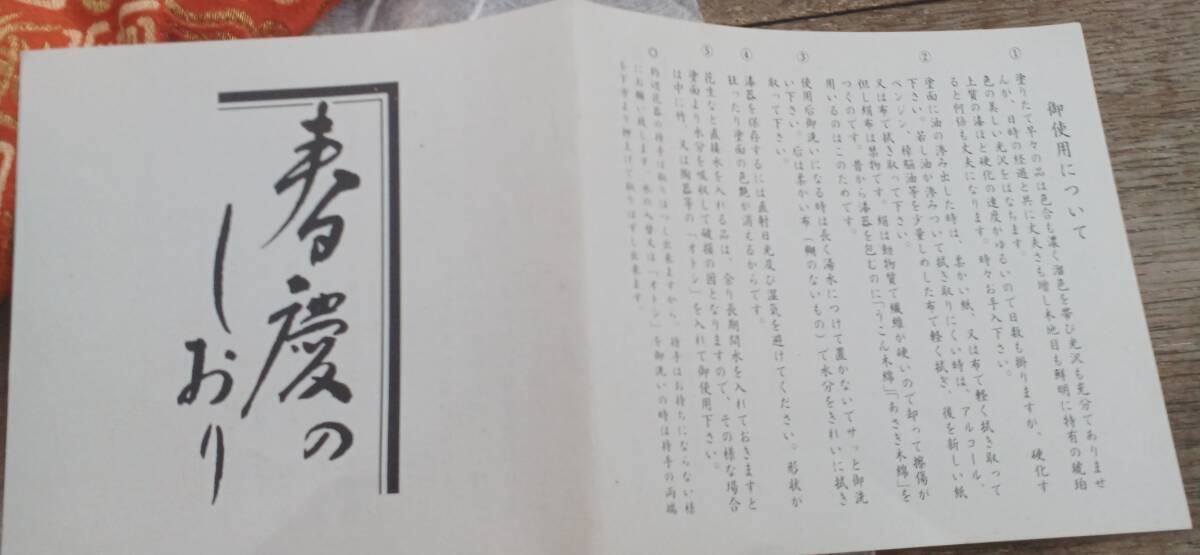 御使用について
① 塗りたて早々の品は色合も濃く溜色を帯び光沢も充分でありませ
んが、日時の経過と共に丈夫さも増し木地目も鮮明に特有の琥珀
色の美しい光沢をはなちます。
上質の漆ほど硬化の速度がゆるいので日数も掛りますが、硬化す
ると何倍も丈夫になります。時々お手入下さい。
② 塗面に油の滲み出した時は、柔かい紙、又は布で軽く拭き取って
下さい。若し油が滲みついて拭き取りにくい時は、アルコール、
ベンジン、樟脳油等を少量しめした布で軽く拭き、後を新しい紙
又は布で拭き取って下さい。
但し絹布は禁物です。絹は動物質で繊維が硬いので却って擦傷が
つくのです。昔から漆器を包むのに「うこん木綿」「あさぎ木綿」を
用いるのはこのためです。
③ 使用后御洗いになる時は長く湯水につけて置かないでサッと御洗
い下さい。后は柔かい布(糊のないもの)で水分をきれいに拭き
取って下さい。
④ 漆器を保存するには直射日光及び湿気を避けてください。形状が
狂ったり塗面の色艶が消えるからです。
⑤ 花生など直接水を入れる品は、余り長期間水を入れておきますと
塗面より水分を吸収して破損の因となりますので、その様な場合
は中に竹、又は陶器等の「オトシ」を入れて御使用下さい。
○ 釣切花器の持手は取りはづし出来ますから、持手はお持ちにならない様
にお願い致します。水の入替又は「オトシ」を御洗いの時は持手の両端
を下方より押上げて取りはずし出来ます。
春慶の
しおり